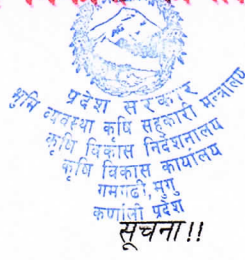 प्रदेश सरकार
भूमि व्यवस्था कृषि सहकारी मन्त्रालय
कृषि विकास निर्देशनालय
कृषि विकास कार्यालय
गमगढी, मुगु
कर्णाली प्रदेश
सूचना!!